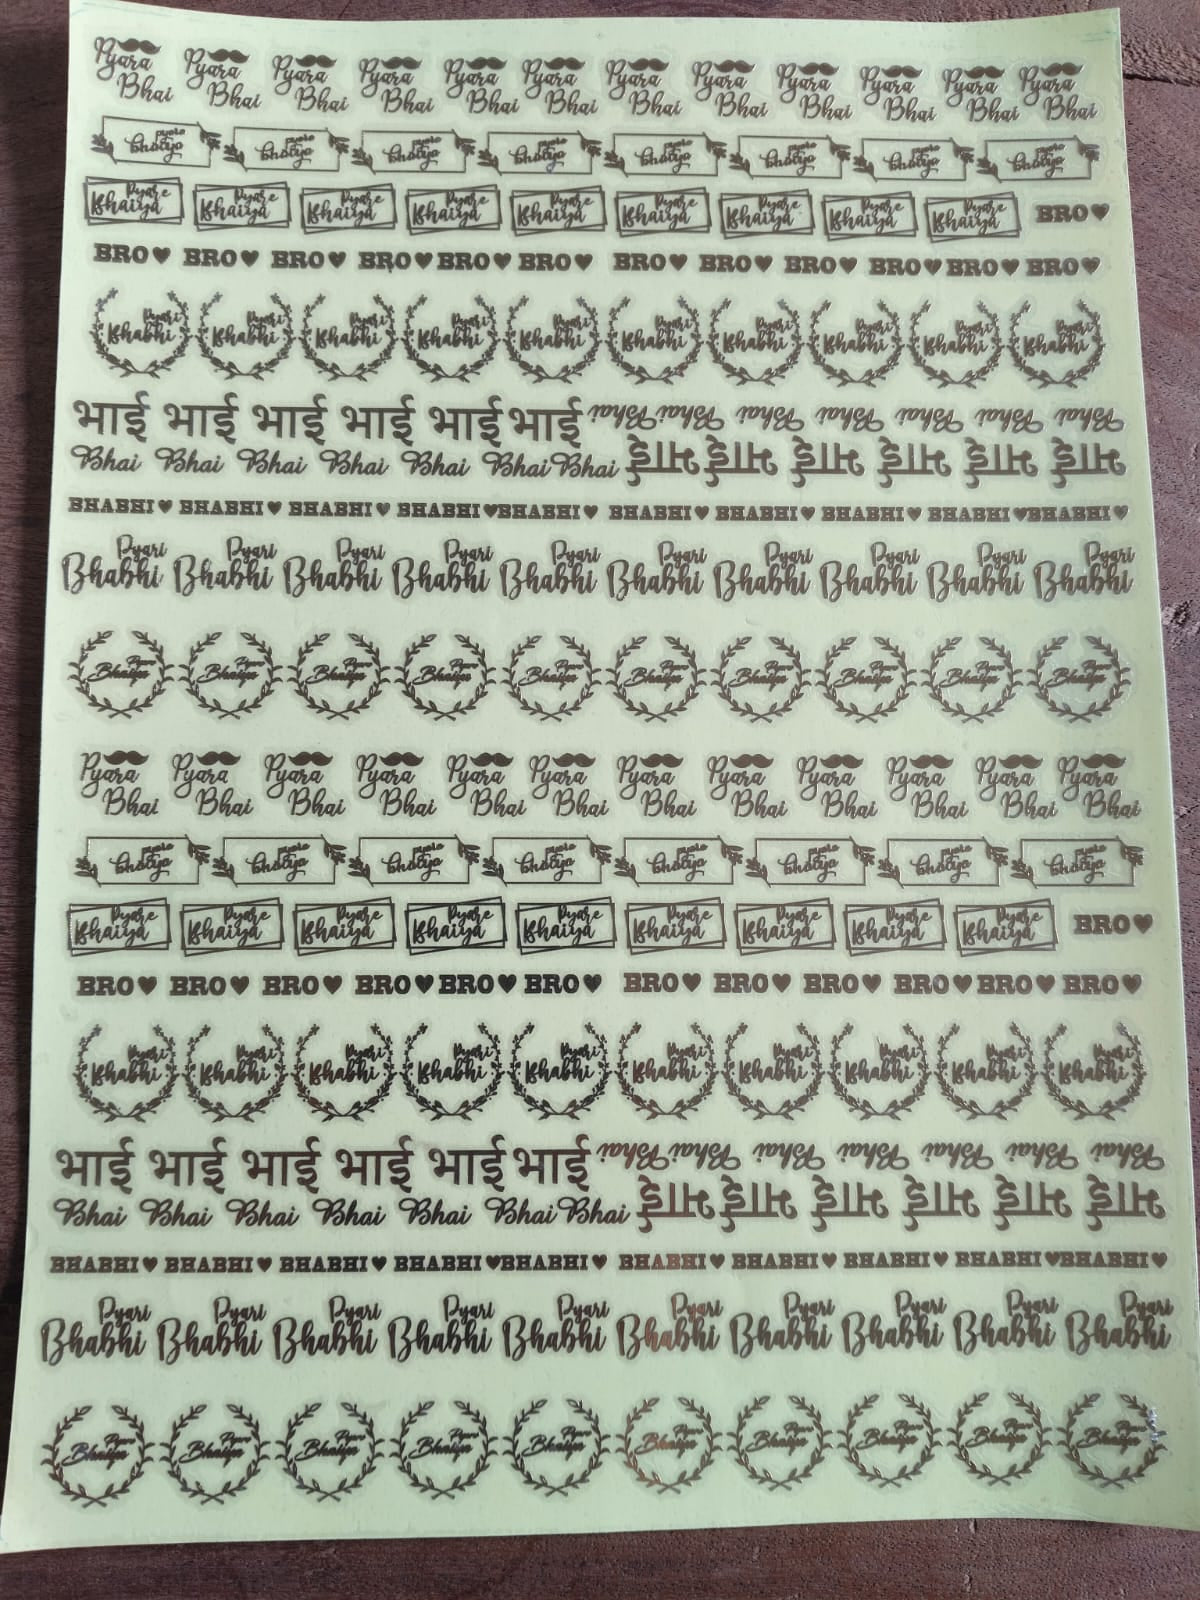 Pyara Pyara Pyara Pyara Pyara Pyara Pyara Pyara Pyara Pyara Pyara Pyara
Bhai Bhai Bhai Bhai Bhai Bhai Bhai Bhai Bhai Bhai Bhai Bhai
pyare pyare pyare pyare pyare pyare pyare pyare
bhaiya bhaiya bhaiya bhaiya bhaiya bhaiya bhaiya bhaiya
Pyare Pyare Pyare Pyare Pyare Pyare Pyare Pyare Pyare
Bhaiya Bhaiya Bhaiya Bhaiya Bhaiya Bhaiya Bhaiya Bhaiya Bhaiya BRO♥
BRO♥ BRO♥ BRO♥ BRO♥ BRO♥ BRO♥ BRO♥ BRO♥ BRO♥ BRO♥ BRO♥ BRO♥
Pyari Pyari Pyari Pyari Pyari Pyari Pyari Pyari Pyari Pyari
Bhabhi Bhabhi Bhabhi Bhabhi Bhabhi Bhabhi Bhabhi Bhabhi Bhabhi Bhabhi
भाई भाई भाई भाई भाई भाई Bhai Bhai Bhai Bhai Bhai Bhai Bhai
Bhai Bhai Bhai Bhai Bhai Bhai Bhai भाई भाई भाई भाई भाई भाई
BHABHI♥ BHABHI♥ BHABHI♥ BHABHI♥ BHABHI♥ BHABHI♥ BHABHI♥ BHABHI♥ BHABHI♥ BHABHI♥
Pyari Pyari Pyari Pyari Pyari Pyari Pyari Pyari Pyari Pyari
Bhabhi Bhabhi Bhabhi Bhabhi Bhabhi Bhabhi Bhabhi Bhabhi Bhabhi Bhabhi
Pyare Pyare Pyare Pyare Pyare Pyare Pyare Pyare Pyare Pyare
Bhaiya Bhaiya Bhaiya Bhaiya Bhaiya Bhaiya Bhaiya Bhaiya Bhaiya Bhaiya
Pyara Pyara Pyara Pyara Pyara Pyara Pyara Pyara Pyara Pyara Pyara Pyara
Bhai Bhai Bhai Bhai Bhai Bhai Bhai Bhai Bhai Bhai Bhai Bhai
pyare pyare pyare pyare pyare pyare pyare pyare
bhaiya bhaiya bhaiya bhaiya bhaiya bhaiya bhaiya bhaiya
Pyare Pyare Pyare Pyare Pyare Pyare Pyare Pyare Pyare
Bhaiya Bhaiya Bhaiya Bhaiya Bhaiya Bhaiya Bhaiya Bhaiya Bhaiya BRO♥
BRO♥ BRO♥ BRO♥ BRO♥ BRO♥ BRO♥ BRO♥ BRO♥ BRO♥ BRO♥ BRO♥ BRO♥
Pyari Pyari Pyari Pyari Pyari Pyari Pyari Pyari Pyari Pyari
Bhabhi Bhabhi Bhabhi Bhabhi Bhabhi Bhabhi Bhabhi Bhabhi Bhabhi Bhabhi
भाई भाई भाई भाई भाई भाई Bhai Bhai Bhai Bhai Bhai Bhai Bhai
Bhai Bhai Bhai Bhai Bhai Bhai Bhai भाई भाई भाई भाई भाई भाई
BHABHI♥ BHABHI♥ BHABHI♥ BHABHI♥ BHABHI♥ BHABHI♥ BHABHI♥ BHABHI♥ BHABHI♥ BHABHI♥
Pyari Pyari Pyari Pyari Pyari Pyari Pyari Pyari Pyari Pyari
Bhabhi Bhabhi Bhabhi Bhabhi Bhabhi Bhabhi Bhabhi Bhabhi Bhabhi Bhabhi
Pyare Pyare Pyare Pyare Pyare Pyare Pyare Pyare Pyare Pyare
Bhaiya Bhaiya Bhaiya Bhaiya Bhaiya Bhaiya Bhaiya Bhaiya Bhaiya Bhaiya